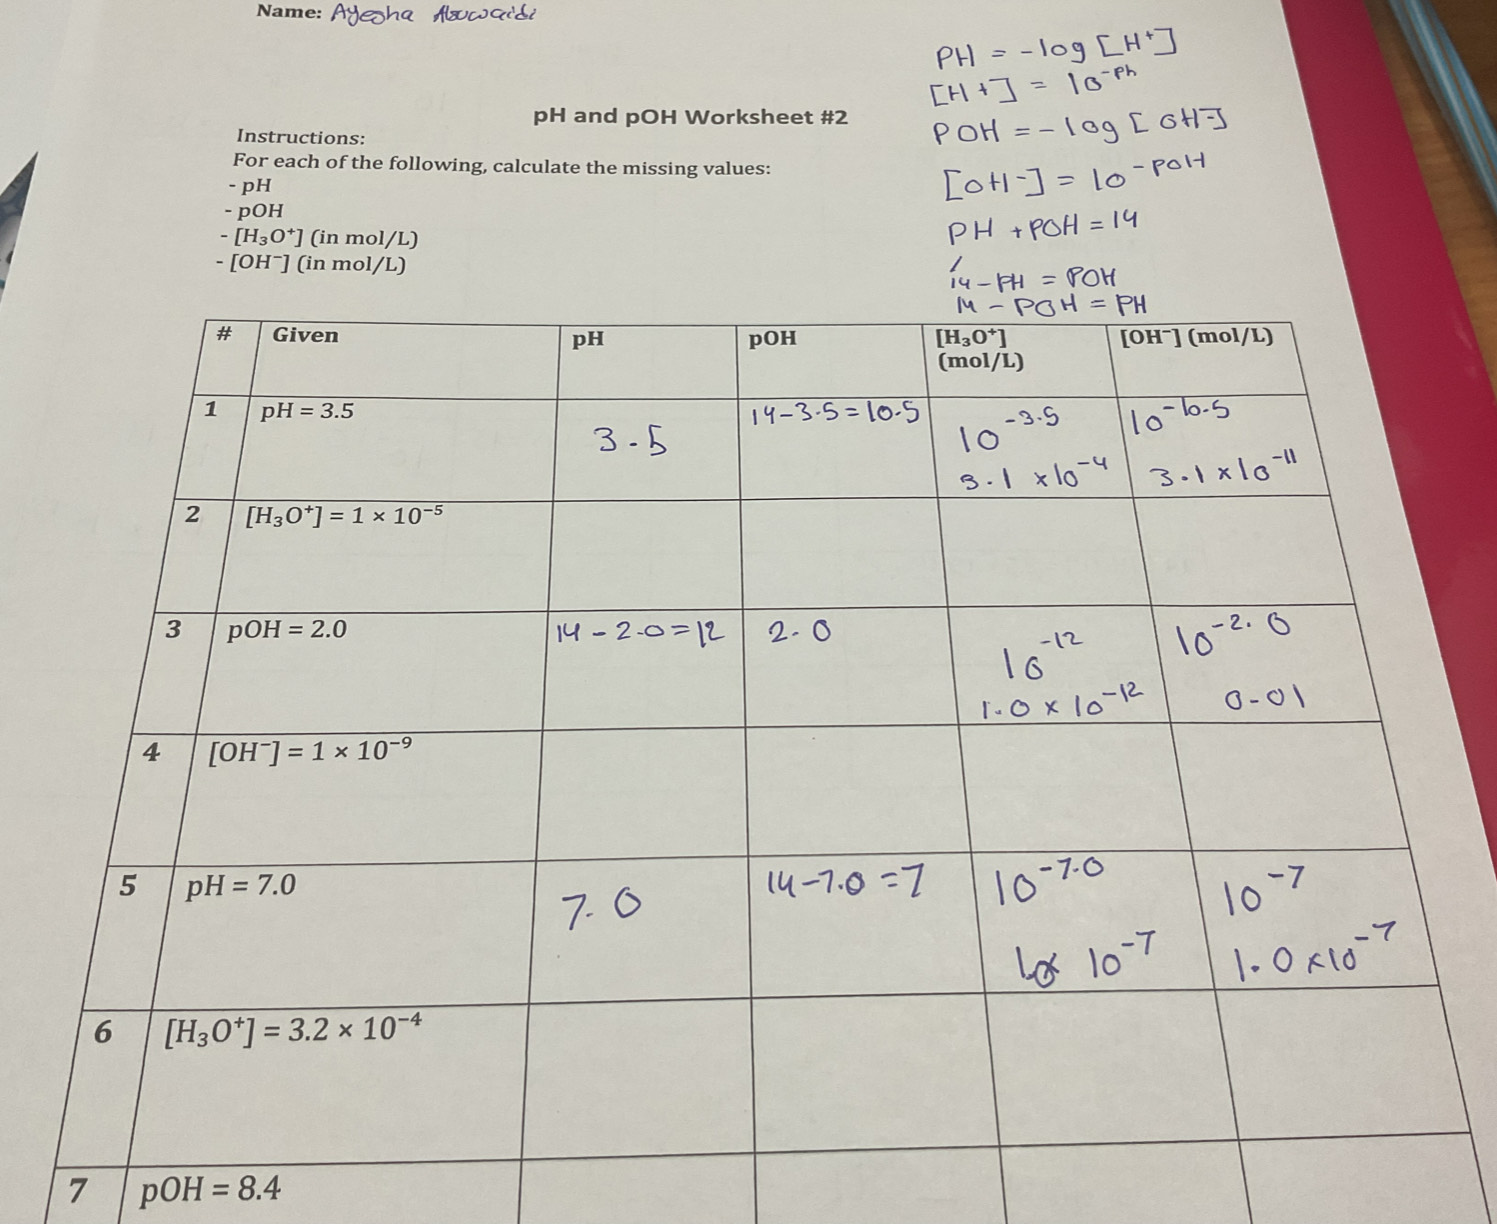 Name: Ayesha Abuwaidi
PH = -log [H⁺]
[H+] = 10⁻ᵖʰ
pH and pOH Worksheet #2
POH = -log [OH⁻]
Instructions:
For each of the following, calculate the missing values:
[OH⁻] = 10⁻ᵖᵒᴴ
- pH
- pOH
PH + POH = 14
- [H₃O⁺] (in mol/L)
- [OH⁻] (in mol/L)
14 - PH = POH
14 - POH = PH
# Given pH pOH [H₃O⁺] (mol/L) [OH⁻] (mol/L)
1 pH = 3.5 3.5 14-3.5=10.5 10⁻³·⁵ 10⁻¹⁰·⁵
3.1 x10⁻⁴ 3.1 x10⁻¹¹
2 [H₃O⁺] = 1 × 10⁻⁵
3 pOH = 2.0 14 - 2.0=12 2.0 10⁻¹² 10⁻²·⁰
1.0 x 10⁻¹² 0.01
4 [OH⁻] = 1 × 10⁻⁹
5 pH = 7.0 7.0 14-7.0=7 10⁻⁷·⁰ 10⁻⁷
10⁻⁷ 1.0 x10⁻⁷
6 [H₃O⁺] = 3.2 × 10⁻⁴
7 pOH = 8.4